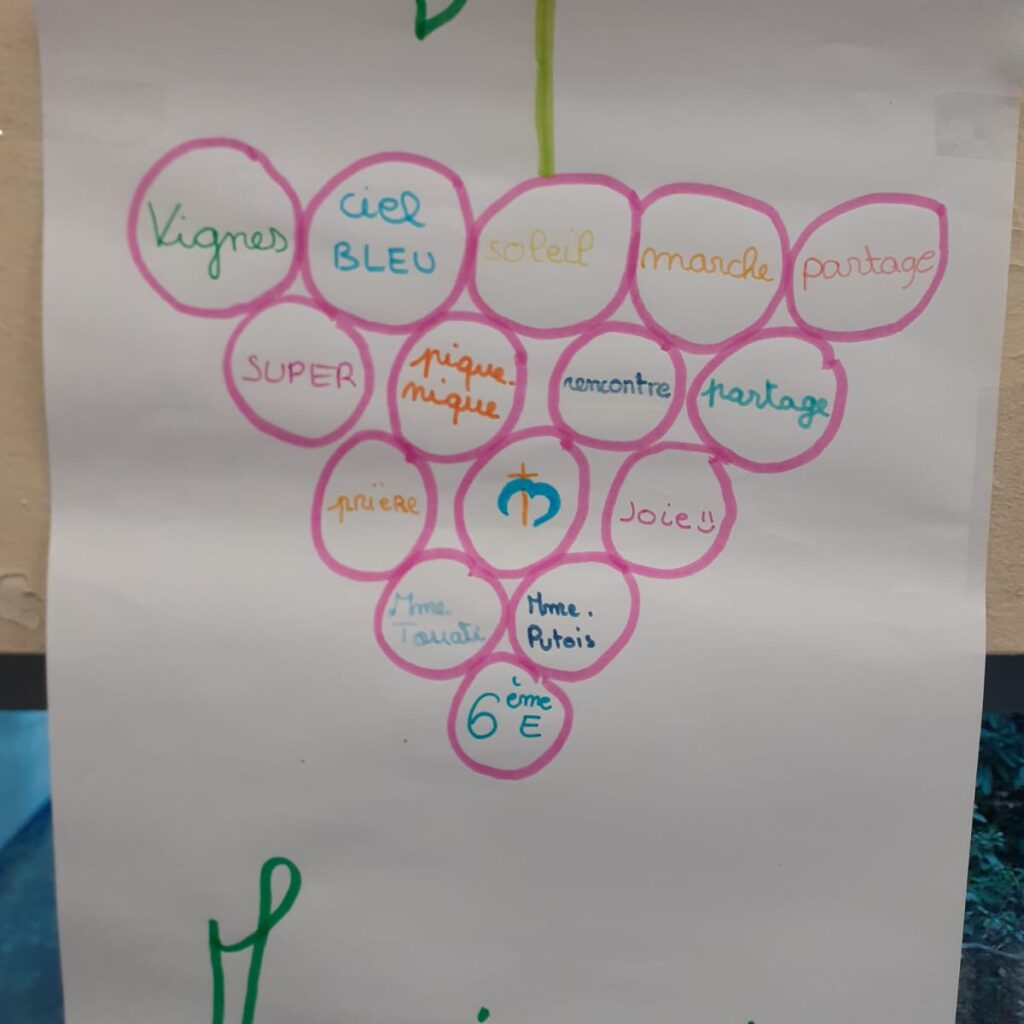 Vignes
ciel
BLEU
soleil
marche
partage
SUPER
pique.
nique
rencontre
partage
prière
Joie
Mme.
Touati
Mme.
Putois
6ème
E